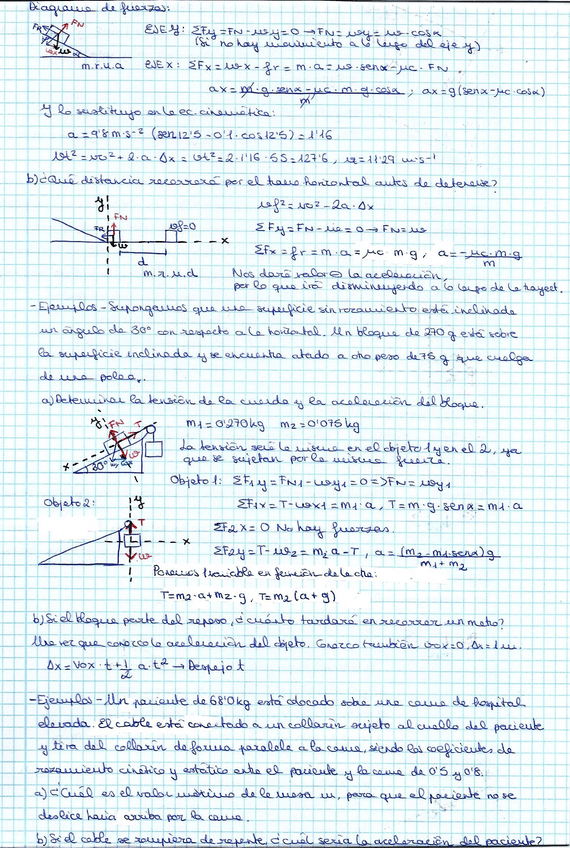 Diagrama de fuerzas:
EJE y: ΣFy = FN - wy = 0 → FN = wy = w · cosα
(Si no hay movimiento a lo largo del eje y)
FR FN wx w α
m.r.u.a EJE x: ΣFx = wx - fr = m · a = w · senα - μc · FN.
ax = m · g · senα - μc · m · g · cosα / m ; ax = g(senα - μc · cosα)
Y lo sustituyo en la ec. cinemática:
a = 9'8 m·s⁻² (sen12'5 - 0'1 · cos12'5) = 1'16
vt² = vo² + 2 · a · Δx = vt² = 2 · 1'16 · 55 = 127'6, v = 11'29 m·s⁻¹
b) ¿Qué distancia recorrerá por el tramo horizontal antes de detenerse?
y FN FR w vf=0 x d
vf² = vo² - 2a · Δx
ΣFy = FN - w = 0 → FN = w
ΣFx = fr = m · a = μc · m · g, a = -μc · m · g / m
m.r.u.d Nos dará valor ⊖ la aceleración,
por lo que irá disminuyendo a lo largo de la trayect.
- Ejemplos - Supongamos que una superficie sin rozamiento está inclinada
un ángulo de 30º con respecto a la horizontal. Un bloque de 270 g está sobre
la superficie inclinada y se encuentra atado a otro peso de 75 g que cuelga
de una polea.
a) Determinar la tensión de la cuerda y la aceleración del bloque.
y FN T x 30º w
m1 = 0'270 kg m2 = 0'075 kg
La tensión será la misma en el objeto 1 y en el 2, ya
que se sujetan por la misma fuerza.
Objeto 1: ΣF1y = FN1 - wy1 = 0 => FN = wy1
ΣF1x = T - wx1 = m1 · a, T = m · g · senα = m1 · a
Objeto 2:
y T x w
ΣF2x = 0 No hay fuerzas.
ΣF2y = T - w2 = m2 a - T, a = (m2 - m1 · senα) g / m1 + m2
Ponemos 1 variable en función de la otra:
T = m2 · a + m2 · g, T = m2 (a + g)
b) Si el bloque parte del reposo, ¿cuánto tardará en recorrer un metro?
Una vez que conozco la aceleración del objeto. Conozco también vox = 0, Δx = 1 m.
Δx = vox · t + 1/2 a · t² → Despejo t
- Ejemplos - Un paciente de 68'0 kg está colocado sobre una cama de hospital
elevada. El cable está conectado a un collarín sujeto al cuello del paciente
y tira del collarín de forma paralela a la cama, siendo los coeficientes de
rozamiento cinético y estático entre el paciente y la cama de 0'5 y 0'8.
a) ¿Cuál es el valor máximo de la masa m, para que el paciente no se
deslice hacia arriba por la cama.
b) Si el cable se rompiera de repente, ¿cuál sería la aceleración del paciente?